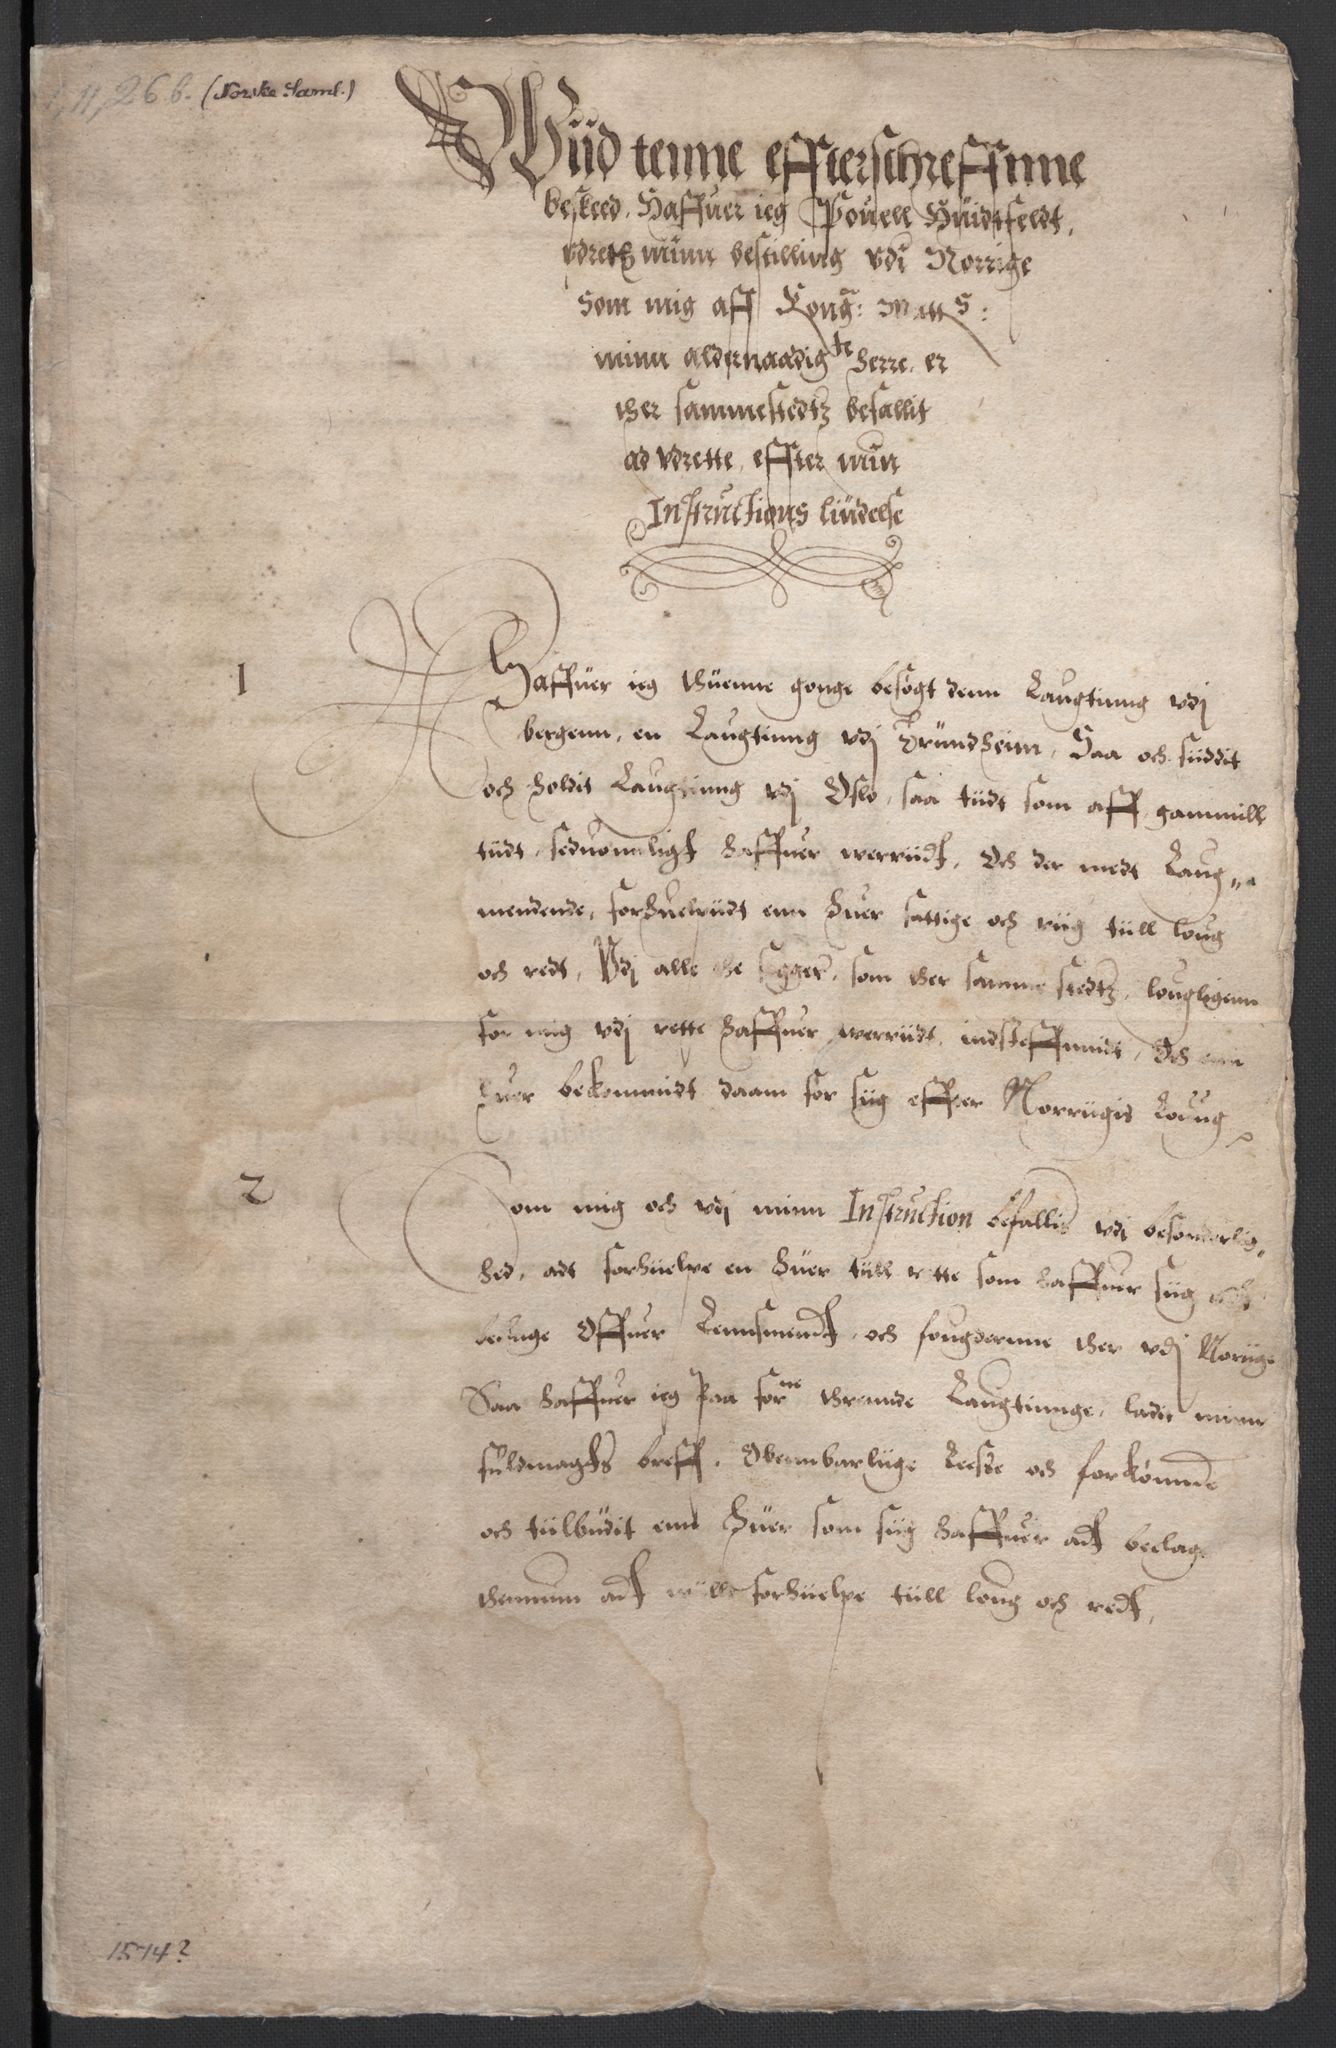 1, 11, 26 b. (Norske Saml.)
Wiid tenne effterschreffnne
beskeed, Haffuer ieg Pouell Huidtfeldt,
vdrett minn bestilling vdi Norrige
Som mig aff Kong: Matts:
minn aldernaadigste herre, er
ther sammestedtz befallit
ad vdrette, effter minn
Instructions liudelse
1
Haffuer ieg thuenne gonge besøgt denn Laugtinng vdj
bergenn, en Laugtinng vdj Trundheim, Saa och siiddit
och holdit Laugtinng vdj Oslo, saa tiidt som aff gammill
tiidt, seduonnligt haffuer werriidt, Och der medt Laug-
mendende, forhuelpiidt enn huer fattige och riig tiill loug
och redt, Vdj alle the sagger, som ther samme stedtz, louglligenn
for mig vdj rette haffuer werriidt, indsteffnnidt, Och enn
huer bekommidt daam for siig effter Norriigis Loug
2
Som mig och vdj minn Instruction befallis vdi besonderlig-
hed, adt forhielpe en huer tiill rette som haffuer siig adt
beclage Offuer Lennsmendt, och fougderinne ther vdj Noriige
Saa haffuer ieg paa forne thrennde Laugtinnge, ladit minn
fuldmagts breff, Obennbarliige Leesse och forkønnde
och tiilbudit enn huer som siig haffuer adt beclage
thennum adt wille forhielpe tiill loug och redt,
1574?